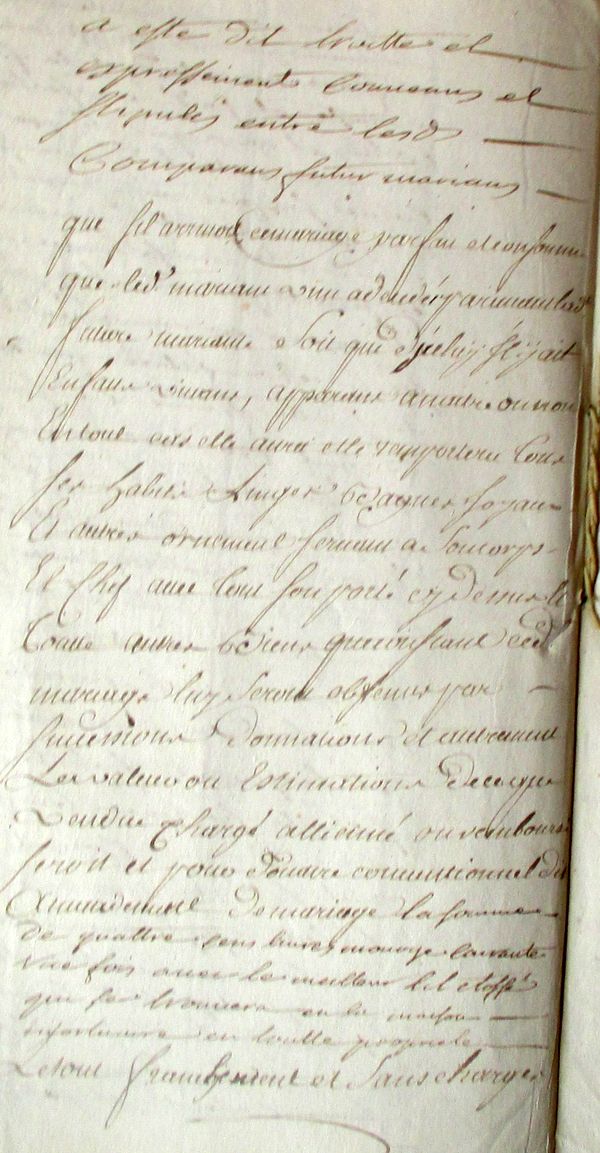 a esté dit traitté et
expressement convenus et
stipulés entre lesds
Comparans futur marians
que s'il arrivoit ce mariage parfait et consommé
que led' mariant vint a deceder paravant lad'
future mariante soit que d'iceluy s'il y ait
Enfans vivans, apparans a naitre ou non
En tout cas elle aura elle rapportera tous
ses habits linges Bagues Joyaux
Et autres ornement servant a son corps
Et Chef avec tout son porté cy dessus et
toutte autres Biens que constant led
mariage luy seroit obtenus par
successions donnations et autrement
Les valeur ou Estimations de ce que
vendue Chargé allienné ou rembourse
seroit et pour Douaire conventionnel dit
Amendement de mariage la somme
de quattre cens livres monoye courante
une fois avec le meilleur lit etoffé
que se trouvera en la maison
mortuaire en toutte propriete
Le tout franchement et sans charges